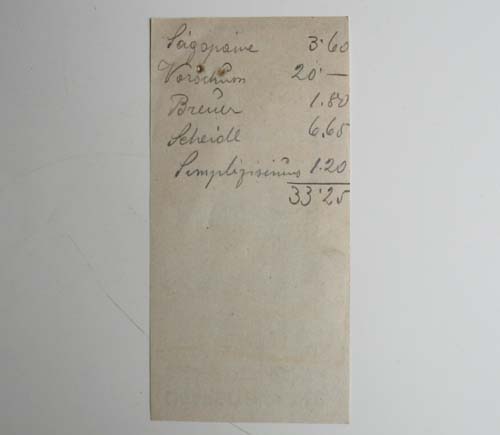 Sägspäne 3·60
Vorschuss 20·—
Breuer 1.80
Scheidl 6.65
Simplizissimus 1.20
33·25